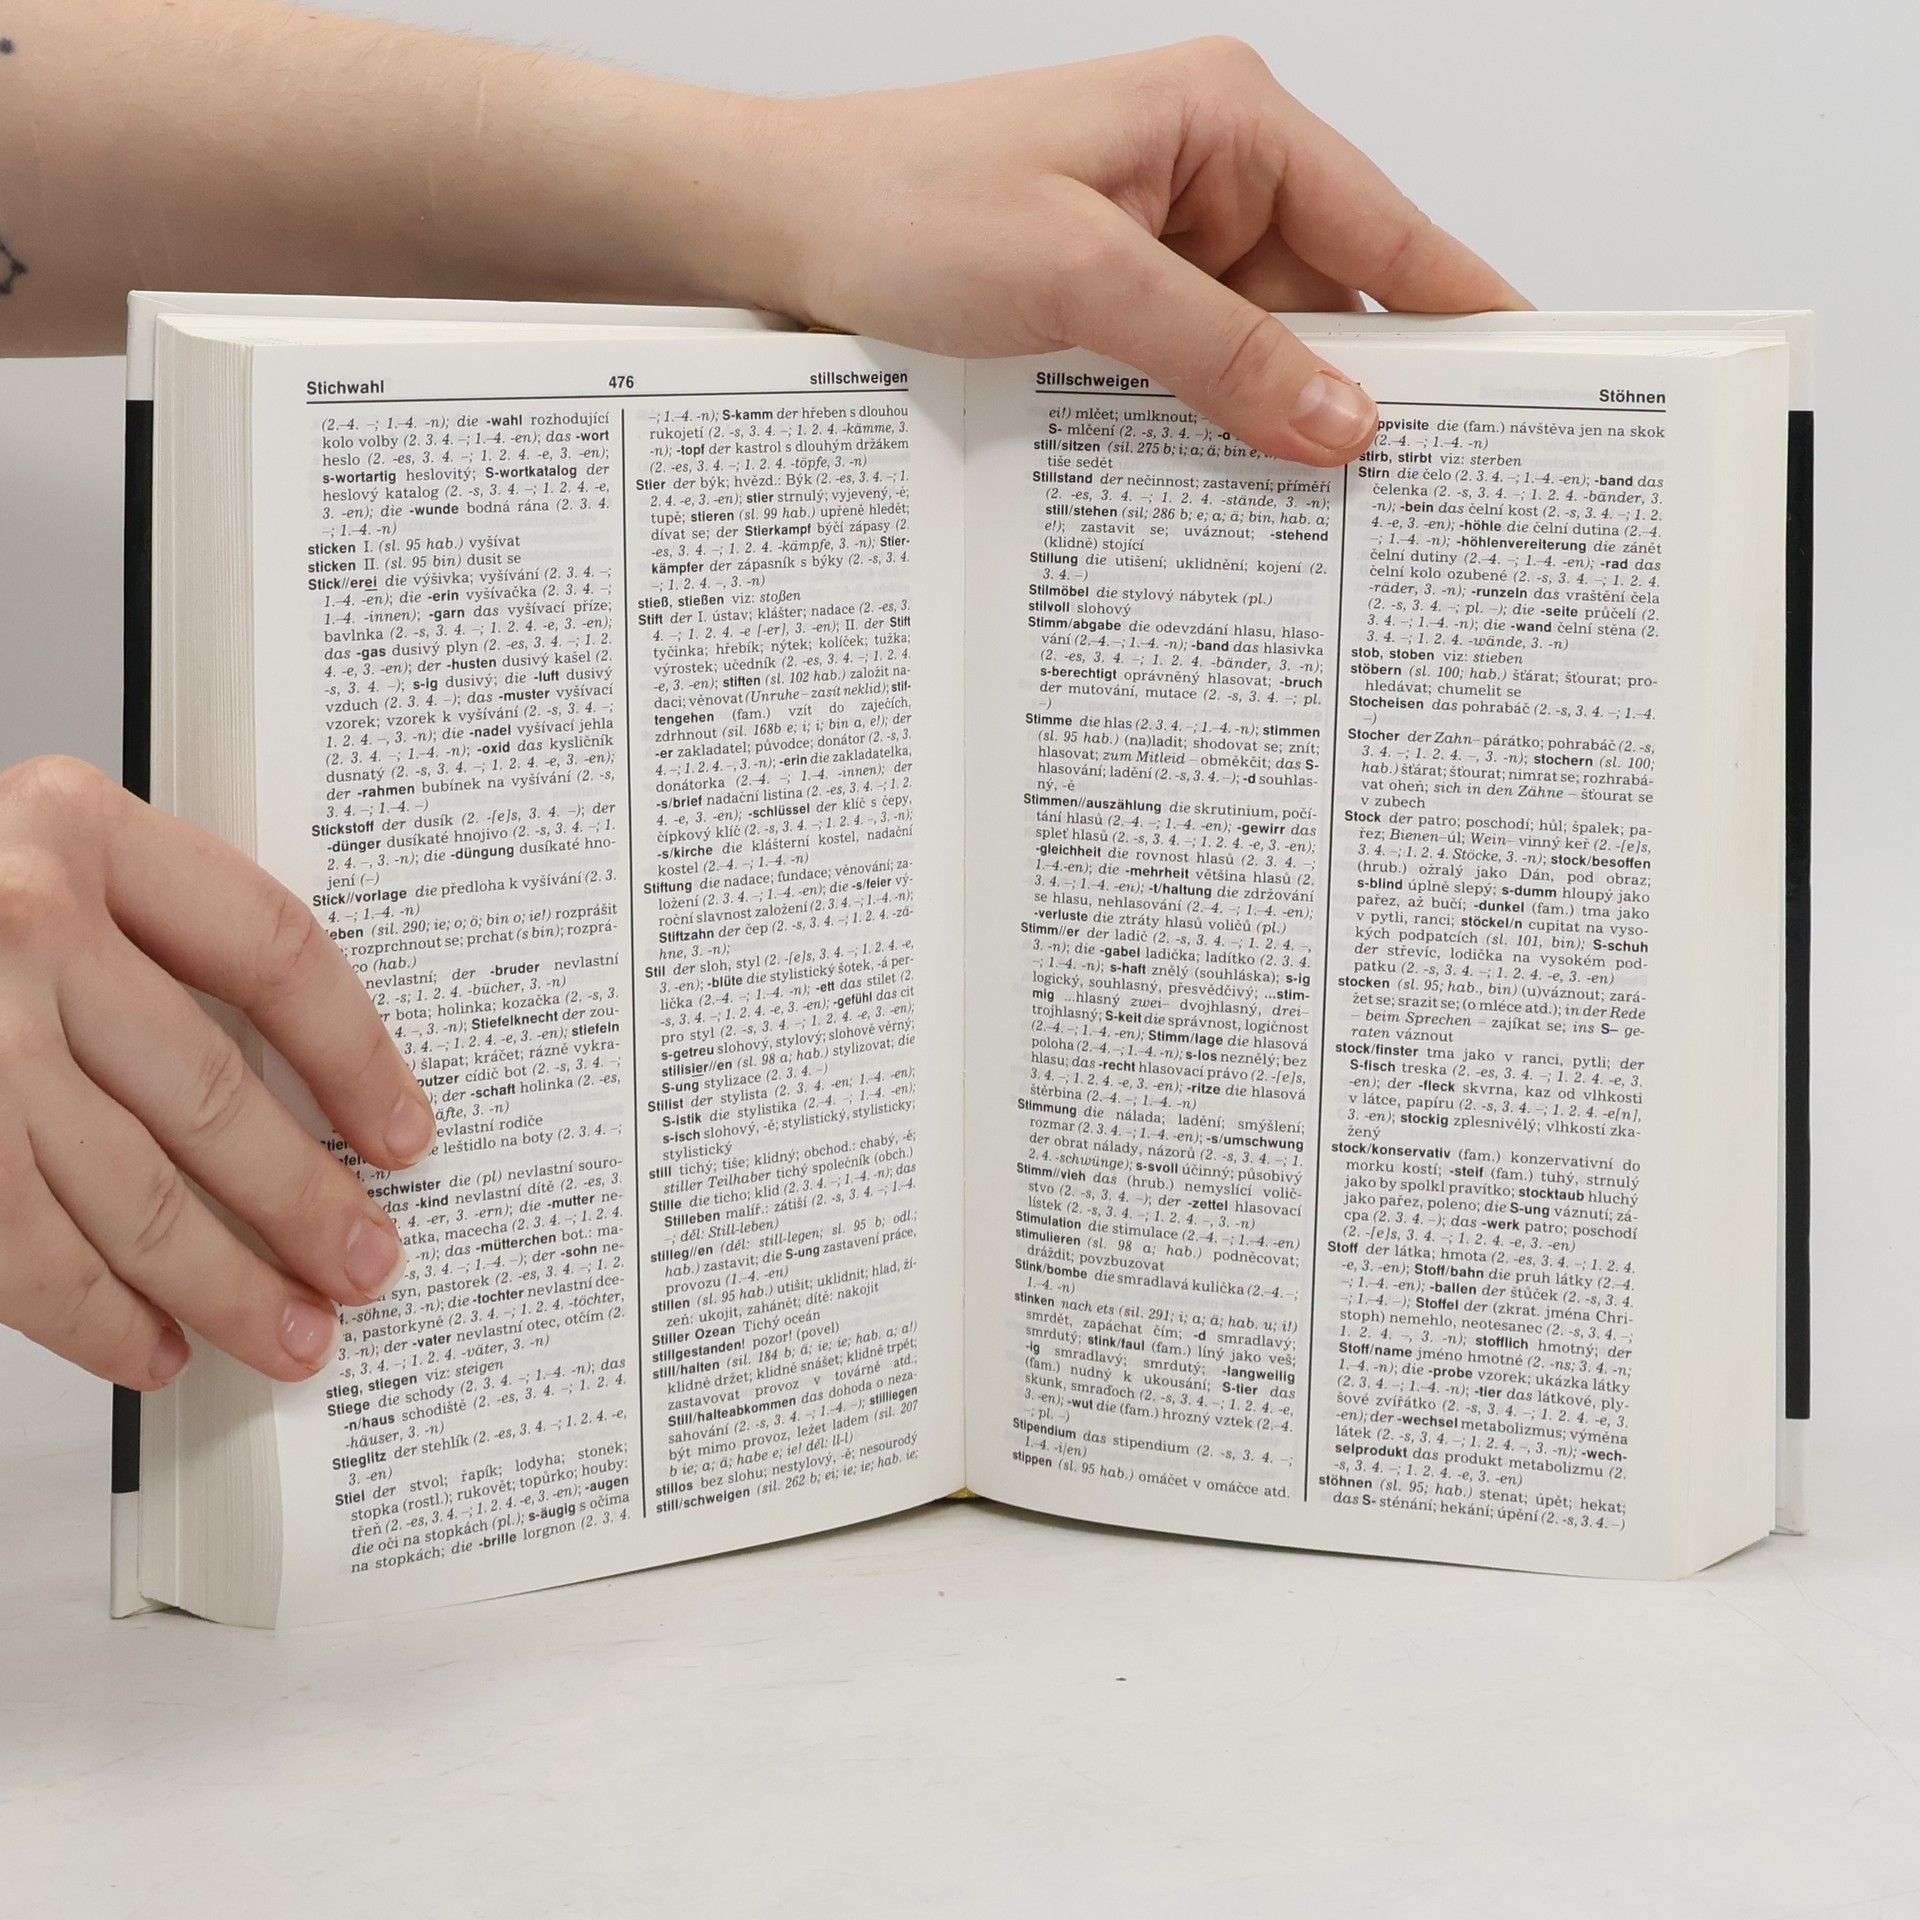 Stichwahl 476 stillschweigen
(2.-4. –; 1.-4. -n); die -wahl rozhodující
kolo volby (2. 3. 4. –; 1.-4. -en); das -wort
heslo (2. -es, 3. 4. –; 1. 2. 4. -e, 3. -en);
s-wortartig heslovitý; S-wortkatalog der
heslový katalog (2. -s, 3. 4. –; 1. 2. 4. -e,
3. -en); die -wunde bodná rána (2. 3. 4.
–; 1.-4. -n)
sticken I. (sl. 95 hab.) vyšívat
sticken II. (sl. 95 bin) dusit se
Stick//erei die výšivka; vyšívání (2. 3. 4. –;
1.-4. -en); die -erin vyšívačka (2. 3. 4. –;
1.-4. -innen); -garn das vyšívací příze;
bavlnka (2. -s, 3. 4. –; 1. 2. 4. -e, 3. -en);
das -gas dusivý plyn (2. -es, 3. 4. –; 1. 2.
4. -e, 3. -en); der -husten dusivý kašel (2.
-s, 3. 4. –); s-ig dusivý; die -luft dusivý
vzduch (2. 3. 4. –); das -muster vyšívací
vzorek; vzorek k vyšívání (2. -s, 3. 4. –;
1. 2. 4. –, 3. -n); die -nadel vyšívací jehla
(2. 3. 4. –; 1.-4. -n); -oxid das kysličník
dusnatý (2. -s, 3. 4. –; 1. 2. 4. -e, 3. -en);
der -rahmen bubínek na vyšívání (2. -s,
3. 4. –; 1.-4. –)
Stickstoff der dusík (2. -[e]s, 3. 4. –); der
-dünger dusíkaté hnojivo (2. -s, 3. 4. –; 1.
2. 4. –, 3. -n); die -düngung dusíkaté hno-
jení (–)
Stick//vorlage die předloha k vyšívání (2. 3.
4. –; 1.-4. -n)
eben (sil. 290; ie; o; ö; bin o; ie!) rozprášit
; rozprchnout se; prchat (s bin); rozprá-
co (hab.)
nevlastní; der -bruder nevlastní
(2. -s; 1. 2. 4. -bücher, 3. -n)
bota; holinka; kozačka (2. -s, 3.
4. –, 3. -n); Stiefelknecht der zou-
3. 4. –; 1. 2. 4. -e, 3. -en); stiefeln
) šlapat; kráčet; rázně vykra-
putzer cídič bot (2. -s, 3. 4. –;
); der -schaft holinka (2. -es,
äfte, 3. -n)
evlastní rodiče
leštidlo na boty (2. 3. 4. –;
-n)
eschwister die (pl) nevlastní souro-
das -kind nevlastní dítě (2. -es, 3.
4. -er, 3. -ern); die -mutter ne-
atka, macecha (2. 3. 4. –; 1. 2. 4.
-n); das -mütterchen bot.: ma-
-s, 3. 4. –; 1.-4. –); der -sohn ne-
syn, pastorek (2. -es, 3. 4. –; 1. 2.
4. -söhne, 3. -n); die -tochter nevlastní dce-
a, pastorkyně (2. 3. 4. –; 1. 2. 4. -töchter,
3. -n); der -vater nevlastní otec, otčím (2.
-s, 3. 4. –; 1. 2. 4. -väter, 3. -n)
stieg, stiegen viz: steigen
Stiege die schody (2. 3. 4. –; 1.-4. -n); das
-n/haus schodiště (2. -es, 3. 4. –; 1. 2. 4.
-häuser, 3. -n)
Stieglitz der stehlík (2. -es, 3. 4. –; 1. 2. 4. -e,
3. -en)
Stiel der stvol; řapík; lodyha; stonek;
stopka (rostl.); rukověť; topůrko; houby:
třeň (2. -es, 3. 4. –; 1. 2. 4. -e, 3. -en); -augen
die oči na stopkách (pl.); s-äugig s očima
na stopkách; die -brille lorgnon (2. 3. 4.
–; 1.-4. -n); S-kamm der hřeben s dlouhou
rukojetí (2. -s, 3. 4. –; 1. 2. 4. -kämme, 3.
-n); -topf der kastrol s dlouhým držákem
(2. -es, 3. 4. –; 1. 2. 4. -töpfe, 3. -n)
Stier der býk; hvězd.: Býk (2. -es, 3. 4. –; 1.
2. 4. -e, 3. -en); stier strnulý; vyjevený, -ě;
tupě; stieren (sl. 99 hab.) upřeně hledět;
dívat se; der Stierkampf býčí zápasy (2.
-es, 3. 4. –; 1. 2. 4. -kämpfe, 3. -n); Stier-
kämpfer der zápasník s býky (2. -s, 3. 4.
–; 1. 2. 4. –, 3. -n)
stieß, stießen viz: stoßen
Stift der I. ústav; klášter; nadace (2. -es, 3.
4. –; 1. 2. 4. -e [-er], 3. -en); II. der Stift
tyčinka; hřebík; nýtek; kolíček; tužka;
výrostek; učedník (2. -es, 3. 4. –; 1. 2. 4.
-e, 3. -en); stiften (sl. 102 hab.) založit na-
daci; věnovat (Unruhe – zasít neklid); stif-
tengehen (fam.) vzít do zaječích,
zdrhnout (sil. 168b e; i; i; bin a, e!); der
-er zakladatel; původce; donátor (2. -s, 3.
4. –; 1. 2. 4. –, 3. -n); -erin die zakladatelka,
donátorka (2.-4. –; 1.-4. -innen); der
-s/brief nadační listina (2. -es, 3. 4. –; 1. 2.
4. -e, 3. -en); -schlüssel der klíč s čepy,
čípkový klíč (2. -s, 3. 4. –; 1. 2. 4. –, 3. -n);
-s/kirche die klášterní kostel, nadační
kostel (2.-4. –; 1.-4. -n)
Stiftung die nadace; fundace; věnování; za-
ložení (2. 3. 4. –; 1.-4. -en); die -s/feier vý-
roční slavnost založení (2. 3. 4. –; 1.-4. -n);
Stiftzahn der čep (2. -s, 3. 4. –; 1. 2. 4. -zä-
hne, 3. -n);
Stil der sloh, styl (2. -[e]s, 3. 4. –; 1. 2. 4. -e,
3. -en); -blüte die stylistický šotek, -á per-
lička (2.-4. –; 1.-4. -n); -ett das stilet (2.
-s, 3. 4. –; 1. 2. 4. -e, 3. -en); -gefühl das cit
pro styl (2. -s, 3. 4. –; 1. 2. 4. -e, 3. -en);
s-getreu slohový, stylový; slohově věrný;
stilisier//en (sl. 98 a; hab.) stylizovat; die
S-ung stylizace (2. 3. 4. –)
Stilist der stylista (2. 3. 4. -en; 1.-4. -en);
S-istik die stylistika (2.-4. –; 1.-4. -en);
s-isch slohový, -ě; stylistický, stylisticky;
stylistický
still tichý; tiše; klidný; obchod.: chabý, -ě;
stiller Teilhaber tichý společník (obch.)
Stille die ticho; klid (2. 3. 4. –; 1.-4. -n); das
Stilleben malíř.: zátiší (2. -s, 3. 4. –; 1.-4.
–; děl: Still-leben)
stilleg//en (děl: still-legen; sl. 95 b; odl.;
hab.) zastavit; die S-ung zastavení práce,
provozu (1.-4. -en)
stillen (sl. 95 hab.) utišit; uklidnit; hlad, ží-
zeň: ukojit, zahánět; dítě: nakojit
Stiller Ozean Tichý oceán
stillgestanden! pozor! (povel)
still/halten (sil. 184 b; ä; ie; ie; hab. a; a!)
klidně držet; klidně snášet; klidně trpět;
zastavovat provoz v továrně atd.;
Still/halteabkommen das dohoda o neza-
sahování (2. -s, 3. 4. –; 1.-4. –); stilliegen
být mimo provoz, ležet ladem (sil. 207
b ie; a; ä; habe e; ie! děl: ll-l)
stillos bez slohu; nestylový, -ě; nesourodý
still/schweigen (sil. 262 b; ei; ie; ie; hab. ie;
Stillschweigen Stöhnen
ei!) mlčet; umlknout;
S- mlčení (2. -s, 3. 4. –);
still/sitzen (sil. 275 b; i; a; ä; bin e,
tiše sedět
Stillstand der nečinnost; zastavení; příměří
(2. -es, 3. 4. –; 1. 2. 4. -stände, 3. -n);
still/stehen (sil; 286 b; e; a; ä; bin, hab. a;
e!); zastavit se; uváznout; -stehend
(klidně) stojící
Stillung die utišení; uklidnění; kojení (2.
3. 4. –)
Stilmöbel die stylový nábytek (pl.)
stilvoll slohový
Stimm/abgabe die odevzdání hlasu, hlaso-
vání (2.-4. –; 1.-4. -n); -band das hlasivka
(2. -es, 3. 4. –; 1. 2. 4. -bänder, 3. -n);
s-berechtigt oprávněný hlasovat; -bruch
der mutování, mutace (2. -s, 3. 4. –; pl.
–)
Stimme die hlas (2. 3. 4. –; 1.-4. -n); stimmen
(sl. 95 hab.) (na)ladit; shodovat se; znít;
hlasovat; zum Mitleid – obměkčit; das S-
hlasování; ladění (2. -s, 3. 4. –); -d souhlas-
ný, -ě
Stimmen//auszählung die skrutinium, počí-
tání hlasů (2.-4. –; 1.-4. -en); -gewirr das
spleť hlasů (2. -s, 3. 4. –; 1. 2. 4. -e, 3. -en);
-gleichheit die rovnost hlasů (2. 3. 4. –;
1.-4. -en); die -mehrheit většina hlasů (2.
3. 4. –; 1.-4. -en); -t/haltung die zdržování
se hlasu, nehlasování (2.-4. –; 1.-4. -en);
-verluste die ztráty hlasů voličů (pl.)
Stimm//er der ladič (2. -s, 3. 4. –; 1. 2. 4. –,
3. -n); die -gabel ladička; ladítko (2. 3. 4.
–; 1.-4. -n); s-haft znělý (souhláska); s-ig
logický, souhlasný, přesvědčivý; ...stim-
mig ...hlasný zwei– dvojhlasný, drei–
trojhlasný; S-keit die správnost, logičnost
(2.-4. –; 1.-4. -en); Stimm/lage die hlasová
poloha (2.-4. –; 1.-4. -n); s-los neznělý; bez
hlasu; das -recht hlasovací právo (2. -[e]s,
3. 4. –; 1. 2. 4. -e, 3. -en); -ritze die hlasová
štěrbina (2.-4. –; 1.-4. -n)
Stimmung die nálada; ladění; smýšlení;
rozmar (2. 3. 4. –; 1.-4. -en); -s/umschwung
der obrat nálady, názorů (2. -s, 3. 4. –; 1.
2. 4. -schwünge); s-svoll účinný; působivý
Stimm//vieh das (hrub.) nemyslící volič-
stvo (2. -s, 3. 4. –); der -zettel hlasovací
lístek (2. -s, 3. 4. –; 1. 2. 4. –, 3. -n)
Stimulation die stimulace (2.-4. –; 1.-4. -en)
stimulieren (sl. 98 a; hab.) podněcovat;
dráždit; povzbuzovat
Stink/bombe die smradlavá kulička (2.-4. –;
1.-4. -n)
stinken nach ets (sil. 291; i; a; ä; hab. u; i!)
smrdět, zapáchat čím; -d smradlavý;
smrdutý; stink/faul (fam.) líný jako veš;
-ig smradlavý; smrdutý; -langweilig
(fam.) nudný k ukousání; S-tier das
skunk, smraďoch (2. -s, 3. 4. –; 1. 2. 4. -e,
3. -en); -wut die (fam.) hrozný vztek (2.-4.
–; pl. –)
Stipendium das stipendium (2. -s, 3. 4. –;
1.-4. -i/en)
stippen (sl. 95 hab.) omáčet v omáčce atd.
ppvisite die (fam.) návštěva jen na skok
(2.-4. –; 1.-4. -n)
stirb, stirbt viz: sterben
Stirn die čelo (2. 3. 4. –; 1.-4. -en); -band das
čelenka (2. -s, 3. 4. –; 1. 2. 4. -bänder, 3.
-n); -bein das čelní kost (2. -s, 3. 4. –; 1. 2.
4. -e, 3. -en); -höhle die čelní dutina (2.-4.
–; 1.-4. -n); -höhlenvereiterung die zánět
čelní dutiny (2.-4. –; 1.-4. -en); -rad das
čelní kolo ozubené (2. -s, 3. 4. –; 1. 2. 4.
-räder, 3. -n); -runzeln das vraštění čela
(2. -s, 3. 4. –; pl. –); die -seite průčelí (2.
3. 4. –; 1.-4. -n); die -wand čelní stěna (2.
3. 4. –; 1. 2. 4. -wände, 3. -n)
stob, stoben viz: stieben
stöbern (sl. 100; hab.) šťárat; šťourat; pro-
hledávat; chumelit se
Stocheisen das pohrabáč (2. -s, 3. 4. –; 1.-4.
–)
Stocher der Zahn– párátko; pohrabáč (2. -s,
3. 4. –; 1. 2. 4. –, 3. -n); stochern (sl. 100;
hab.) šťárat; šťourat; nimrat se; rozhrabá-
vat oheň; sich in den Zähne – šťourat se
v zubech
Stock der patro; poschodí; hůl; špalek; pa-
řez; Bienen– úl; Wein– vinný keř (2. -[e]s,
3. 4. –; 1. 2. 4. Stöcke, 3. -n); stock/besoffen
(hrub.) ožralý jako Dán, pod obraz;
s-blind úplně slepý; s-dumm hloupý jako
pařez, až bučí; -dunkel (fam.) tma jako
v pytli, ranci; stöckel/n cupitat na vyso-
kých podpatcích (sl. 101, bin); S-schuh
der střevíc, lodička na vysokém pod-
patku (2. -s, 3. 4. –; 1. 2. 4. -e, 3. -en)
stocken (sl. 95; hab., bin) (u)váznout; zará-
žet se; srazit se; (o mléce atd.); in der Rede
– beim Sprechen – zajíkat se; ins S– ge-
raten váznout
stock/finster tma jako v ranci, pytli; der
S-fisch treska (2. -es, 3. 4. –; 1. 2. 4. -e, 3.
-en); der -fleck skvrna, kaz od vlhkosti
v látce, papíru (2. -s, 3. 4. –; 1. 2. 4. -e[n],
3. -en); stockig zplesnivělý; vlhkostí zka-
žený
stock/konservativ (fam.) konzervativní do
morku kostí; -steif (fam.) tuhý, strnulý
jako by spolkl pravítko; stocktaub hluchý
jako pařez, poleno; die S-ung váznutí; zá-
cpa (2. 3. 4. –); das -werk patro; poschodí
(2. -[e]s, 3. 4. –; 1. 2. 4. -e, 3. -en)
Stoff der látka; hmota (2. -es, 3. 4. –; 1. 2. 4.
-e, 3. -en); Stoff/bahn die pruh látky (2.-4.
–; 1.-4. -en); -ballen der štůček (2. -s, 3. 4.
–; 1.-4. –); Stoffel der (zkrat. jména Chri-
stoph) nemehlo, neotesanec (2. -s, 3. 4. –;
1. 2. 4. –, 3. -n); stofflich hmotný; der
Stoff/name jméno hmotné (2. -ns; 3. 4. -n;
1.-4. -n); die -probe vzorek; ukázka látky
(2. 3. 4. –; 1.-4. -n); -tier das látkové, ply-
šové zvířátko (2. -s, 3. 4. –; 1. 2. 4. -e, 3.
-en); der -wechsel metabolizmus; výměna
látek (2. -s, 3. 4. –; 1. 2. 4. –, 3. -n); -wech-
selprodukt das produkt metabolizmu (2.
-s, 3. 4. –; 1. 2. 4. -e, 3. -en)
stöhnen (sl. 95; hab.) stenat; úpět; hekat;
das S- sténání; hekání; úpění (2. -s, 3. 4. –)